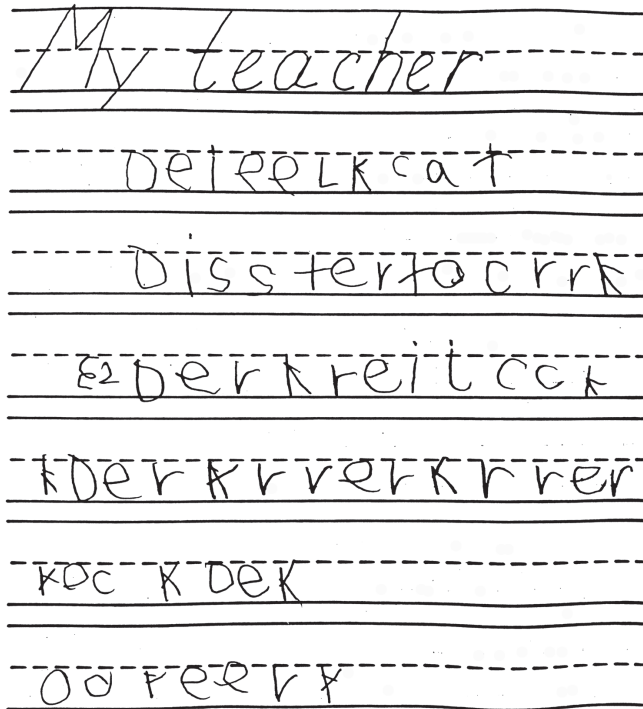 My teacher
DeleeLKcat
DissterfocrrK
DerKreitcck
KDerKrrerKrrer
KDC K DeK
oo reerk